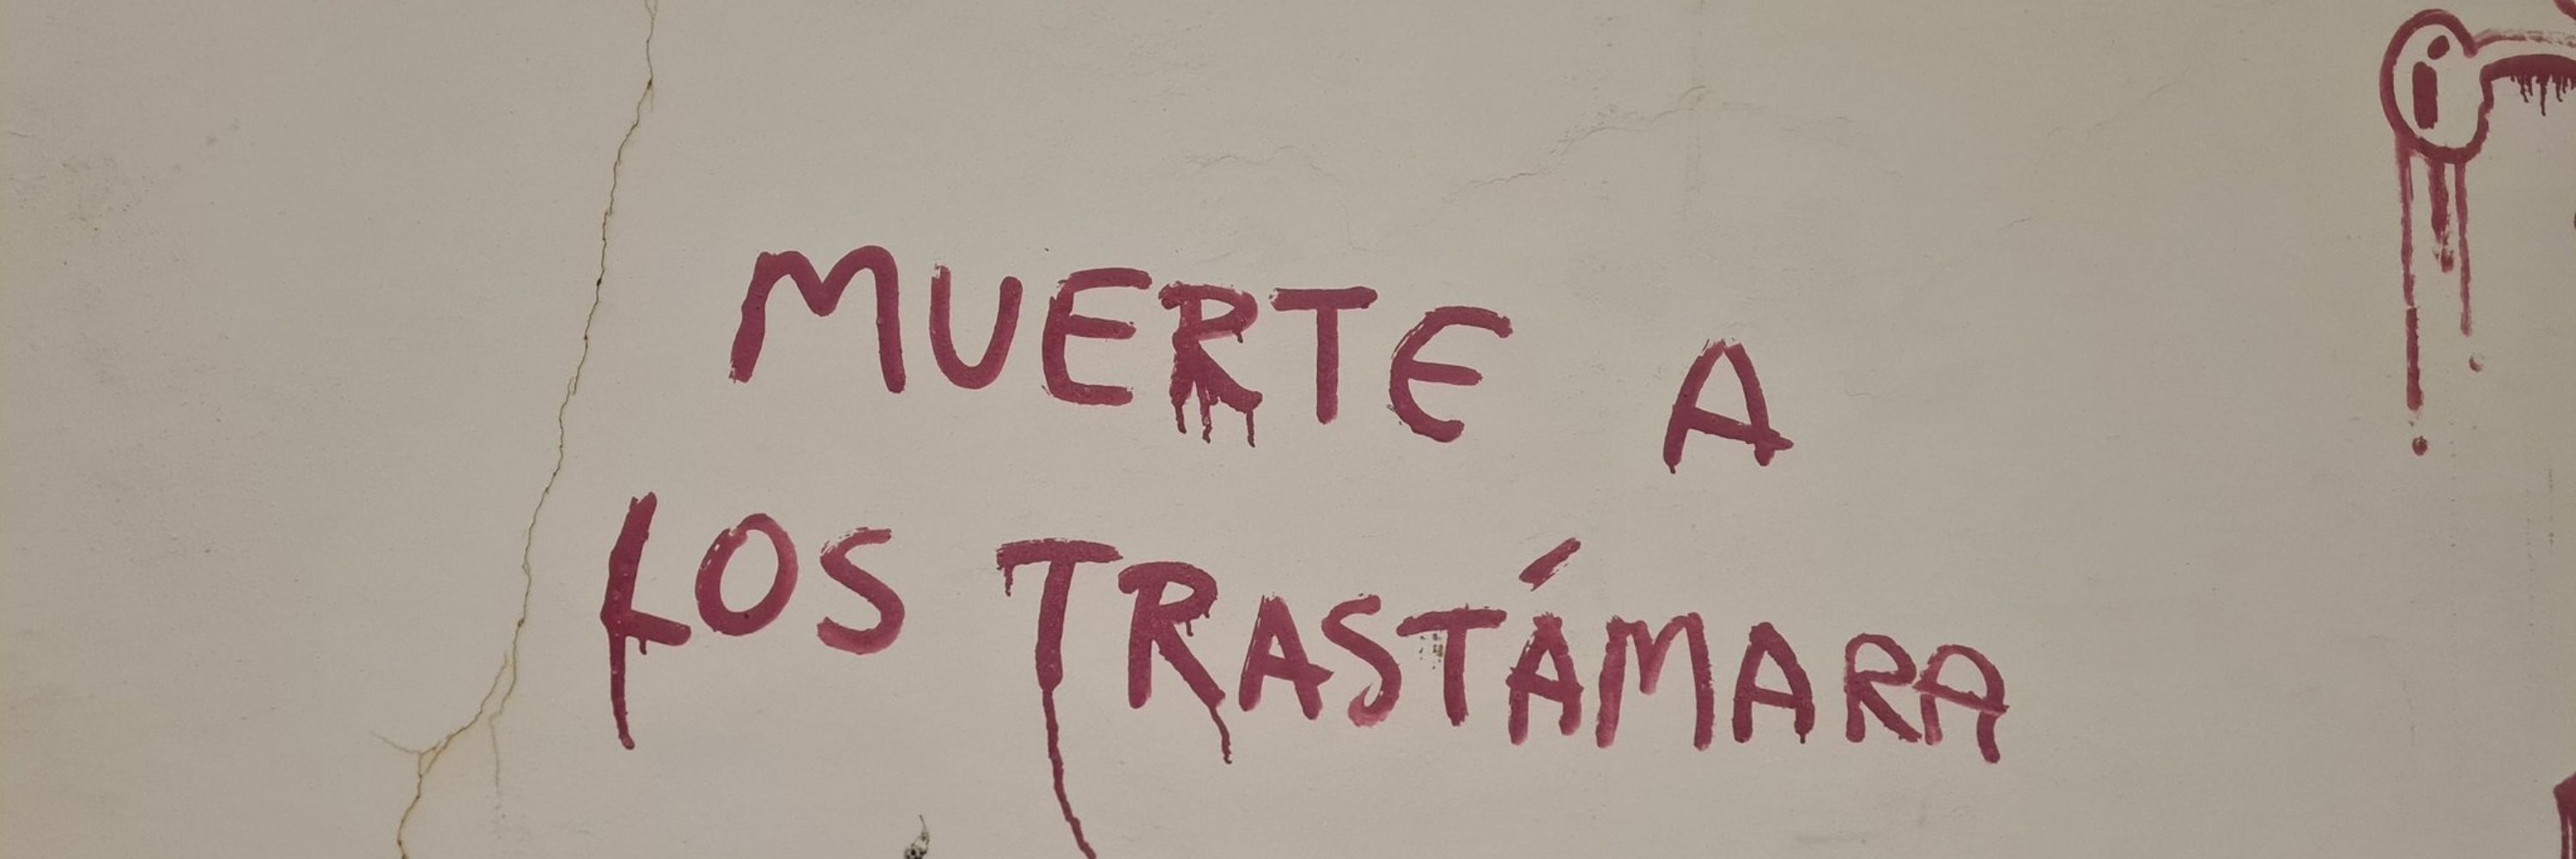 MUERTE A
LOS TRASTÁMARA